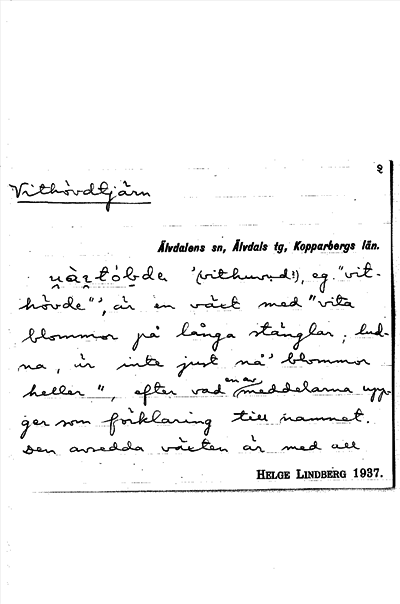 2
Vithövdtjärn
Älvdalens sn, Älvdals tg, Kopparbergs län.
(vithuvud!), eg. "vit-
hövde"', är en växt med "vita
blommor på långa stänglar, lud-
na, är inte just nå' blommor
heller", efter vad en av meddelarna upp-
ger som förklaring till namnet.
Den avsedda växten är med all
HELGE LINDBERG 1937.